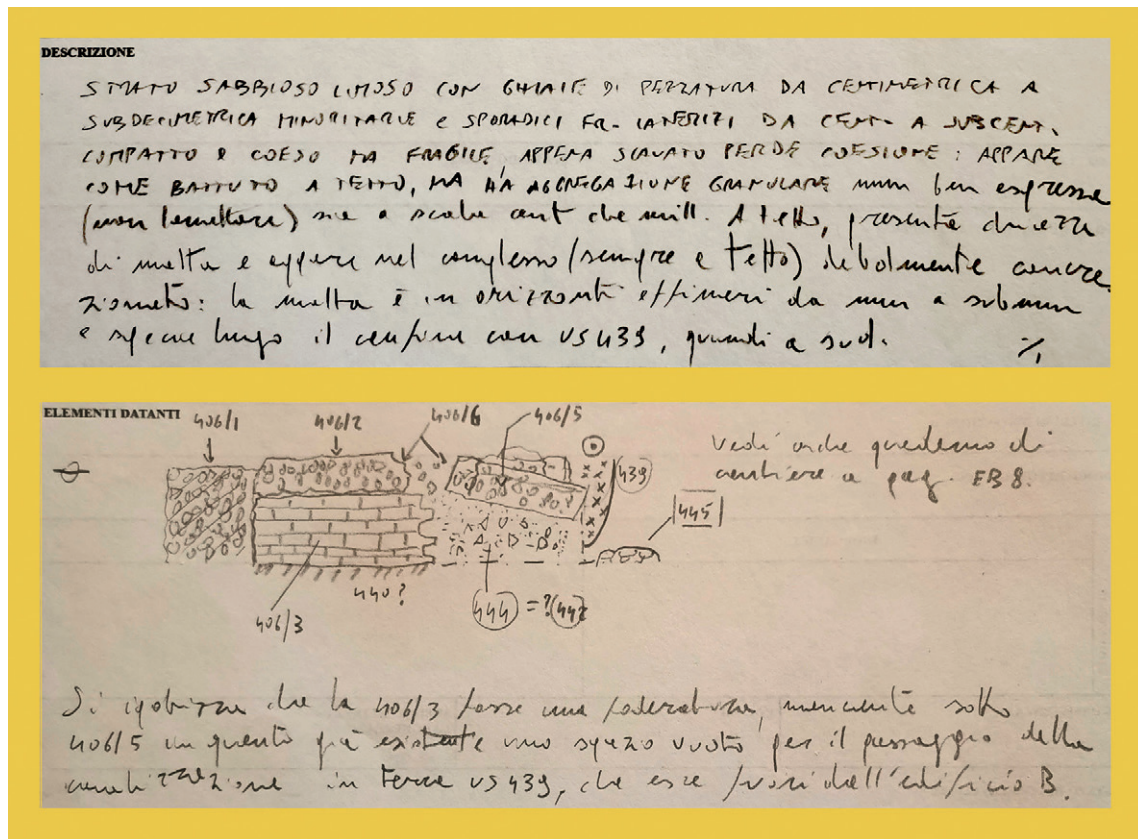 DESCRIZIONE
STRATO SABBIOSO LIMOSO CON GHIAIE DI PEZZATURA DA CENTIMETRICA A
SUBDECIMETRICA MINORITARIE e SPORADICI FR. LATERIZI DA CENT. A SUBCENT.
COMPATTO e COESO MA FRAGILE, APPENA SCAVATO PERDE COESIONE: APPARE
COME BATTUTO A TETTO, MA HA AGGREGAZIONE GRANULARE mm ben espressa
(non lamellare) sia a scala cent che mill. A tetto, presenta chiazze
di malta e appare nel complesso (sempre a tetto) debolmente concre
zionato: la malta è in orizzonti effimeri da mm a submm
e specie lungo il confine con US 439, quindi a sud.
%
ELEMENTI DATANTI
406/1
406/2
406/6
406/5
439
445
440?
444 =? 442
406/3
Vedi anche quaderno di
cantiere a pag. EB 8.
Si ipotizza che la 406/3 fosse una foderatura, mancante sotto
406/5 in quanto già esistente uno spazio vuoto per il passaggio della
canalizzazione in Ferro US 439, che esce fuori dall'edificio B.